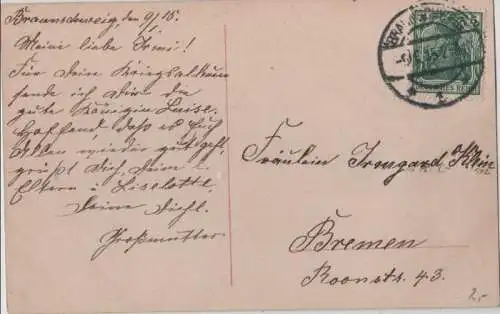 Braunschweig den 9/15.
Meine liebe Irmi!
Für Dein Kriegsalbum
sende ich Dir die
gute Königin Luise.
Hoffend, daß es Euch
Allen wieder gut geht,
grüßt Dich, Deine l.
Eltern u. Liselotte
Deine Dichl.
Großmutter
Fräulein Irmgard Klein
Bremen
Roonstr. 43.
2,-